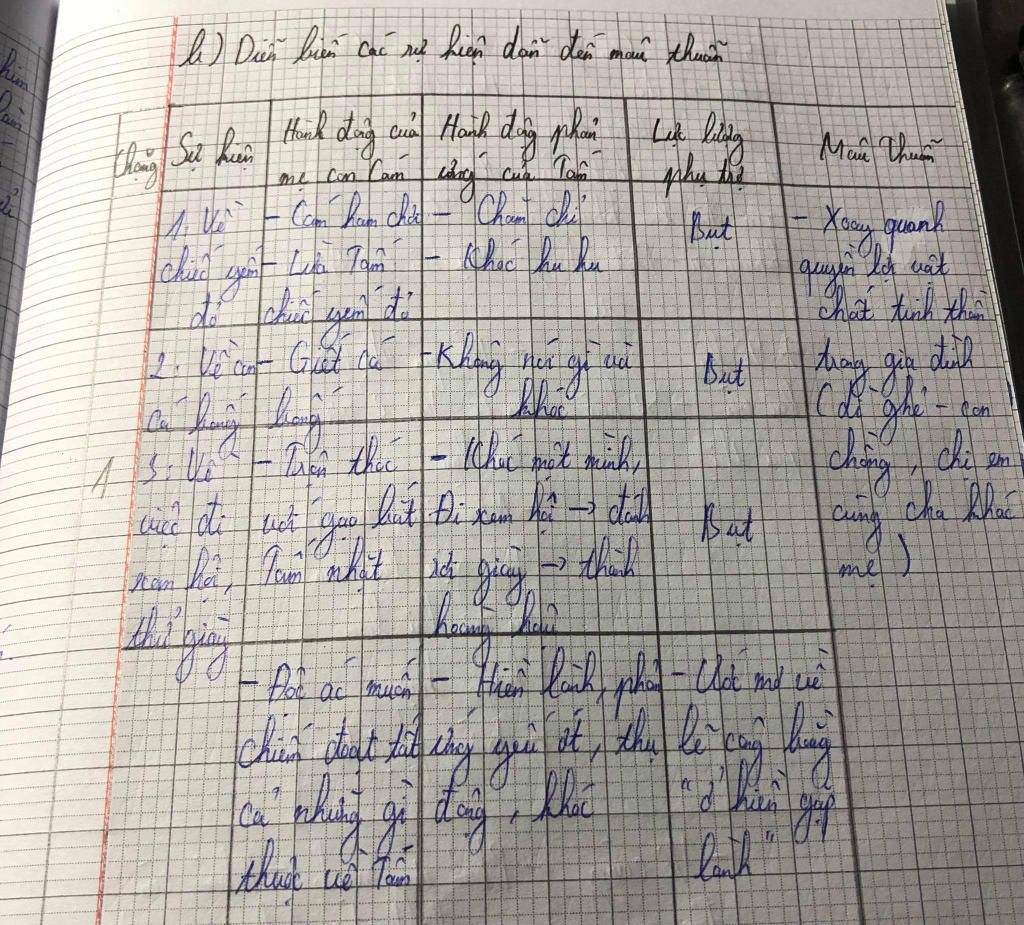 b) Diễn biến các sự kiện dẫn đến mâu thuẫn
Chặng
Sự kiện
Hành động của
mẹ con Cám
Hành động phản
ứng của Tấm
Lực lượng
phụ trợ
Mâu thuẫn
1
1. Về
chiếc yếm
đỏ
- Cám ham chơi
- Lừa Tấm
chiếc yếm đỏ
- Chăm chỉ
- Khóc hu hu
Bụt
- Xoay quanh
quyền lợi vật
chất tinh thần
trong gia đình
(dì ghẻ - con
chồng, chị em
cùng cha khác
mẹ)
2. Về con
cá bống
- Giết cá
bống
- Không nói gì và
khóc
Bụt
3. Về
việc đi
xem hội,
thử giày
- Trộn thóc
với gạo bắt
Tấm nhặt
- Khóc một mình,
Đi xem hội → đánh
rơi giày → thành
hoàng hậu
Bụt
- Độc ác muốn
chiếm đoạt tất
cả những gì
thuộc về Tấm
- Hiền lành, phản
ứng yếu ớt, thụ
động, khóc
- Ước mơ về
lẽ công bằng
"ở hiền gặp
lành"